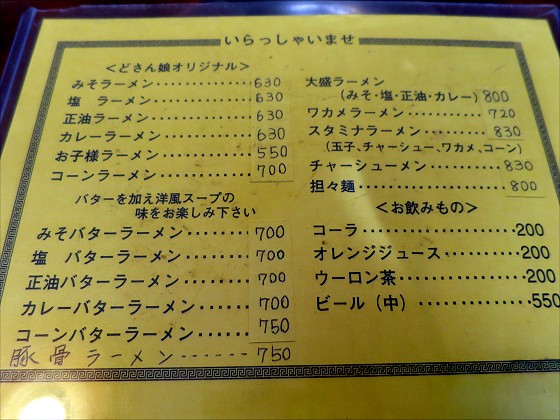 いらっしゃいませ
<どさん娘オリジナル>
みそラーメン・・・・・・・・・・・・630
塩　ラーメン・・・・・・・・・・・・630
正油ラーメン・・・・・・・・・・・・630
カレーラーメン・・・・・・・・・・630
お子様ラーメン・・・・・・・・・・550
コーンラーメン・・・・・・・・・・700
バターを加え洋風スープの
味をお楽しみ下さい
みそバターラーメン・・・・・・700
塩　バターラーメン・・・・・・700
正油バターラーメン・・・・・・700
カレーバターラーメン・・・・700
コーンバターラーメン・・・・・750
豚骨ラーメン------750
大盛ラーメン
(みそ・塩・正油・カレー) 800
ワカメラーメン・・・・・・・・・720
スタミナラーメン・・・・・・・830
(玉子、チャーシュー、ワカメ、コーン)
チャーシューメン・・・・・・・・830
担々麺・・・・・・・・・・・・・・・・800
<お飲みもの>
コーラ・・・・・・・・・・・・・・・・200
オレンジジュース・・・・・・・・200
ウーロン茶・・・・・・・・・・・・・200
ビール（中）・・・・・・・・・・・・550